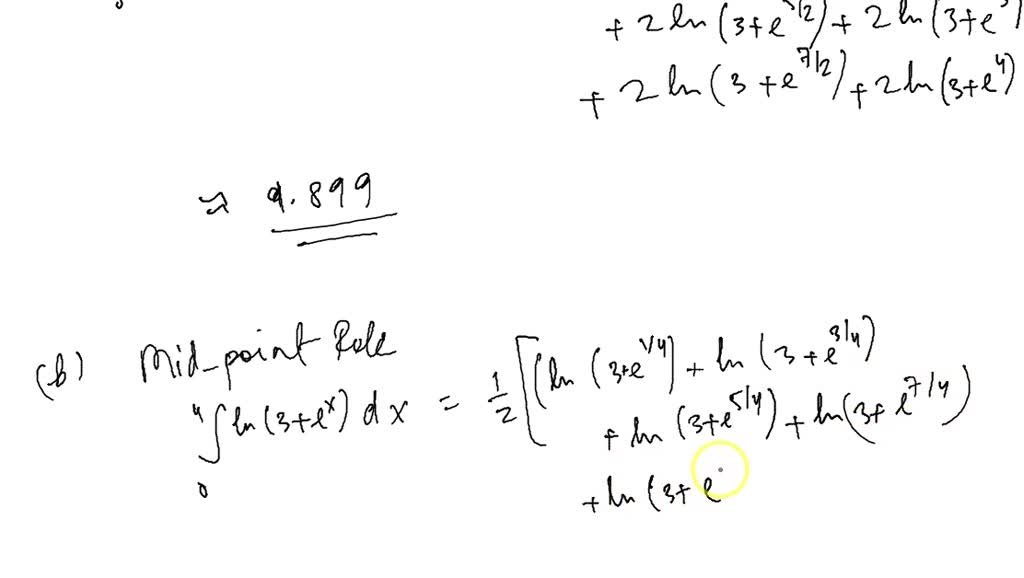 + 2 ln (3+e^5/2) + 2 ln (3+e^3)
+ 2 ln (3 + e^7/2) + 2 ln (3+e^4)
≈ 9.899
(b) Mid-point Rule
4∫0 ln (3+e^x) dx = 1/2 [(ln (3+e^1/4) + ln (3+e^3/4)
+ ln (3+e^5/4) + ln (3+ e^7/4)
+ ln (3+ e